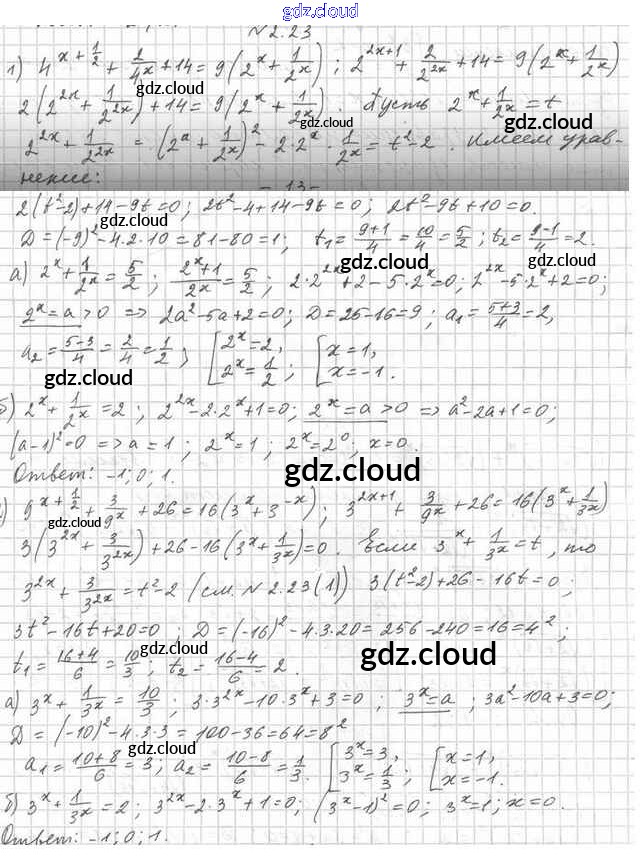 gdz.cloud
N 2.23
1) 4^{x+\frac{1}{2}} + \frac{2}{4^x} + 14 = 9(2^x + \frac{1}{2^x}) ; 2^{2x+1} + \frac{2}{2^{2x}} + 14 = 9(2^x + \frac{1}{2^x})
2(2^{2x} + \frac{1}{2^{2x}}) + 14 = 9(2^x + \frac{1}{2^x}) . Пусть 2^x + \frac{1}{2^x} = t
gdz.cloud
gdz.cloud
2^{2x} + \frac{1}{2^{2x}} = (2^x + \frac{1}{2^x})^2 - 2·2^x · \frac{1}{2^x} = t^2 - 2 . Имеем урав-
нение:
- 13 -
2(t^2-2)+14-9t=0; 2t^2-4+14-9t=0; 2t^2-9t+10=0.
gdz.cloud
gdz.cloud
D=(-9)^2-4·2·10=81-80=1; t_1=\frac{9+1}{4}=\frac{10}{4}=\frac{5}{2}; t_2=\frac{9-1}{4}=2.
а) 2^x+\frac{1}{2^x}=\frac{5}{2}; \frac{2^x+1}{2^x}=\frac{5}{2}; 2·2^{2x}+2-5·2^x=0; 2^{2x}-5·2^x+2=0;
2^x=a>0 => 2a^2-5a+2=0; D=25-16=9; a_1=\frac{5+3}{4}=2,
a_2=\frac{5-3}{4}=\frac{2}{4}=\frac{1}{2}; [2^x=2, 2^x=\frac{1}{2}; [x=1, x=-1.
gdz.cloud
gdz.cloud
б) 2^x+\frac{1}{2^x}=2; 2^{2x}-2·2^x+1=0; 2^x=a>0 => a^2-2a+1=0;
(a-1)^2=0 => a=1; 2^x=1; 2^x=2^0; x=0.
Ответ: -1; 0; 1.
gdz.cloud
) 9^{x+\frac{1}{2}}+\frac{3}{9^x}+26=16(3^x+3^{-x}); 3^{2x+1}+\frac{3}{9^x}+26=16(3^x+\frac{1}{3^x})
gdz.cloud
gdz.cloud
3(3^{2x}+\frac{3}{3^{2x}})+26-16(3^x+\frac{1}{3^x})=0. Если 3^x+\frac{1}{3^x}=t, то
3^{2x}+\frac{3}{3^{2x}}=t^2-2 (см. N 2.23(1)) 3(t^2-2)+26-16t=0;
3t^2-16t+20=0; D=(-16)^2-4·3·20=256-240=16=4^2;
t_1=\frac{16+4}{6}=\frac{10}{3}; t_2=\frac{16-4}{6}=2.
gdz.cloud
gdz.cloud
а) 3^x+\frac{1}{3^x}=\frac{10}{3}; 3·3^{2x}-10·3^x+3=0; 3^x=a; 3a^2-10a+3=0;
D=(-10)^2-4·3·3=100-36=64=8^2
a_1=\frac{10+8}{6}=3; a_2=\frac{10-8}{6}=\frac{1}{3}. [3^x=3, 3^x=\frac{1}{3}; [x=1, x=-1.
gdz.cloud
gdz.cloud
б) 3^x+\frac{1}{3^x}=2; 3^{2x}-2·3^x+1=0; (3^x-1)^2=0; 3^x=1; x=0.
Ответ: -1; 0; 1.
gdz.cloud